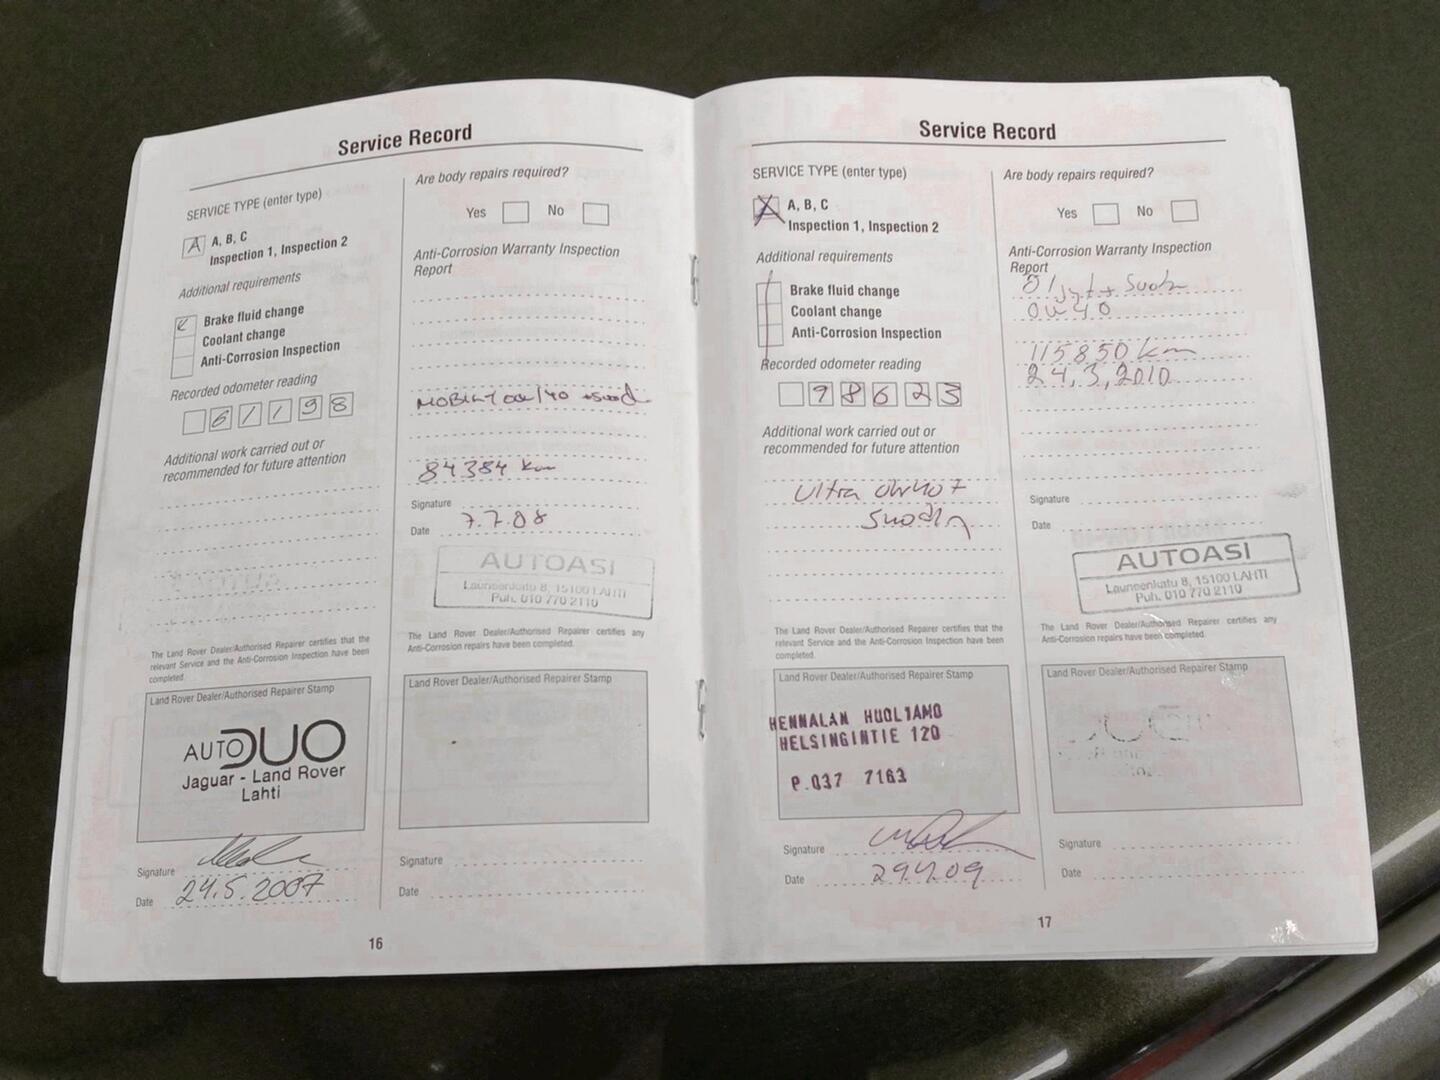 Service Record
SERVICE TYPE (enter type)
A
A, B, C
Inspection 1, Inspection 2
Additional requirements
Brake fluid change
Coolant change
Anti-Corrosion Inspection
Recorded odometer reading
61198
Additional work carried out or
recommended for future attention
The Land Rover Dealer/Authorised Repairer certifies that the
relevant Service and the Anti-Corrosion Inspection have been
completed.
Land Rover Dealer/Authorised Repairer Stamp
AUTODUO
Jaguar - Land Rover
Lahti
Signature
Date 24.5.2007
Are body repairs required?
Yes No
Anti-Corrosion Warranty Inspection
Report
84384 km
Signature
Date 7.7.08
AUTOASI
Launeenkatu 8, 15100 LAHTI
Puh. 010 770 2110
The Land Rover Dealer/Authorised Repairer certifies any
Anti-Corrosion repairs have been completed.
Land Rover Dealer/Authorised Repairer Stamp
Signature
Date
16
Service Record
SERVICE TYPE (enter type)
A, B, C
Inspection 1, Inspection 2
Additional requirements
Brake fluid change
Coolant change
Anti-Corrosion Inspection
Recorded odometer reading
98623
Additional work carried out or
recommended for future attention
Ultra
The Land Rover Dealer/Authorised Repairer certifies that the
relevant Service and the Anti-Corrosion Inspection have been
completed.
Land Rover Dealer/Authorised Repairer Stamp
HENNALAN HUOLTAMO
HELSINGINTIE 120
P.037 7163
Signature
Date
Are body repairs required?
Yes No
Anti-Corrosion Warranty Inspection
Report
0W40
115850 km
24.3.2010
Signature
Date
AUTOASI
Launeenkatu 8, 15100 LAHTI
Puh. 010 770 2110
The Land Rover Dealer/Authorised Repairer certifies any
Anti-Corrosion repairs have been completed.
Land Rover Dealer/Authorised Repairer Stamp
Signature
Date
17